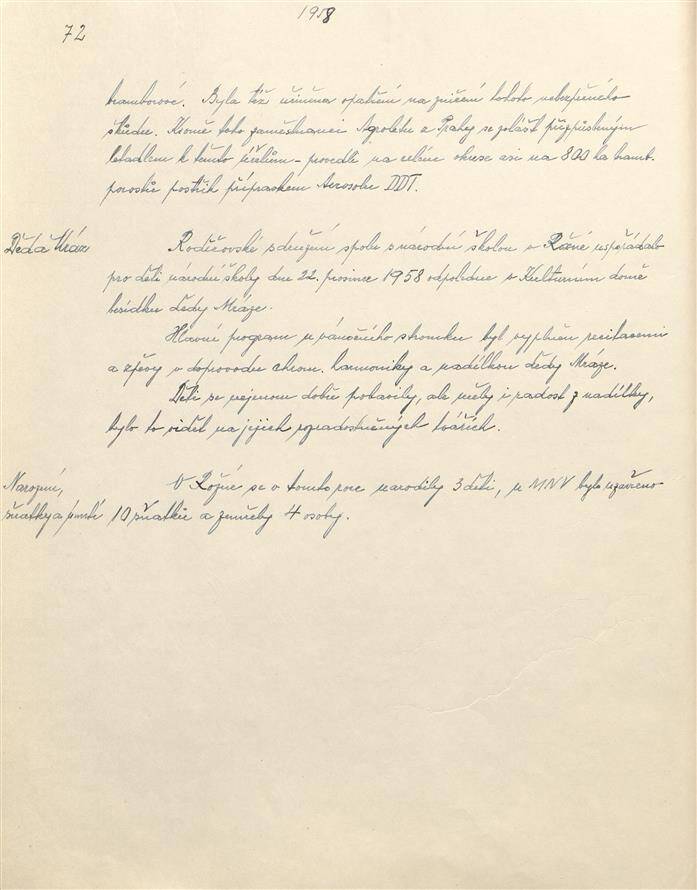 1958
72
bramborové. Byla též učiněna opatření na zničení tohoto nebezpečného
škůdce. Kromě toho zaměstnanci Agroletu z Prahy se zvlášť přizpůsobeným
letadlem k těmto účelům - provedli na celém okrese asi na 800 ha bramb.
porostů postřik přípravkem Aerosolu DDT.
Děda Mráz
Rodičovské sdružení spolu s národní školou v Rožné uspořádalo
pro děti národní školy dne 22. prosince 1958 odpoledne v Kulturním domě
besídku Dědy Mráze.
Hlavní program u vánočního stromku byl vyplněn recitacemi
a zpěvy v doprovodu chrom. harmoniky a nadílkou Dědy Mráze.
Děti se nejenom dobře pobavily, ale měly i radost z nadílky,
bylo to vidět na jejich rozradostněných tvářích.
Narození,
sňatky a úmrtí
V Rožné se v tomto roce narodily 3 děti, u MNV bylo uzavřeno
10 sňatků a zemřely 4 osoby.